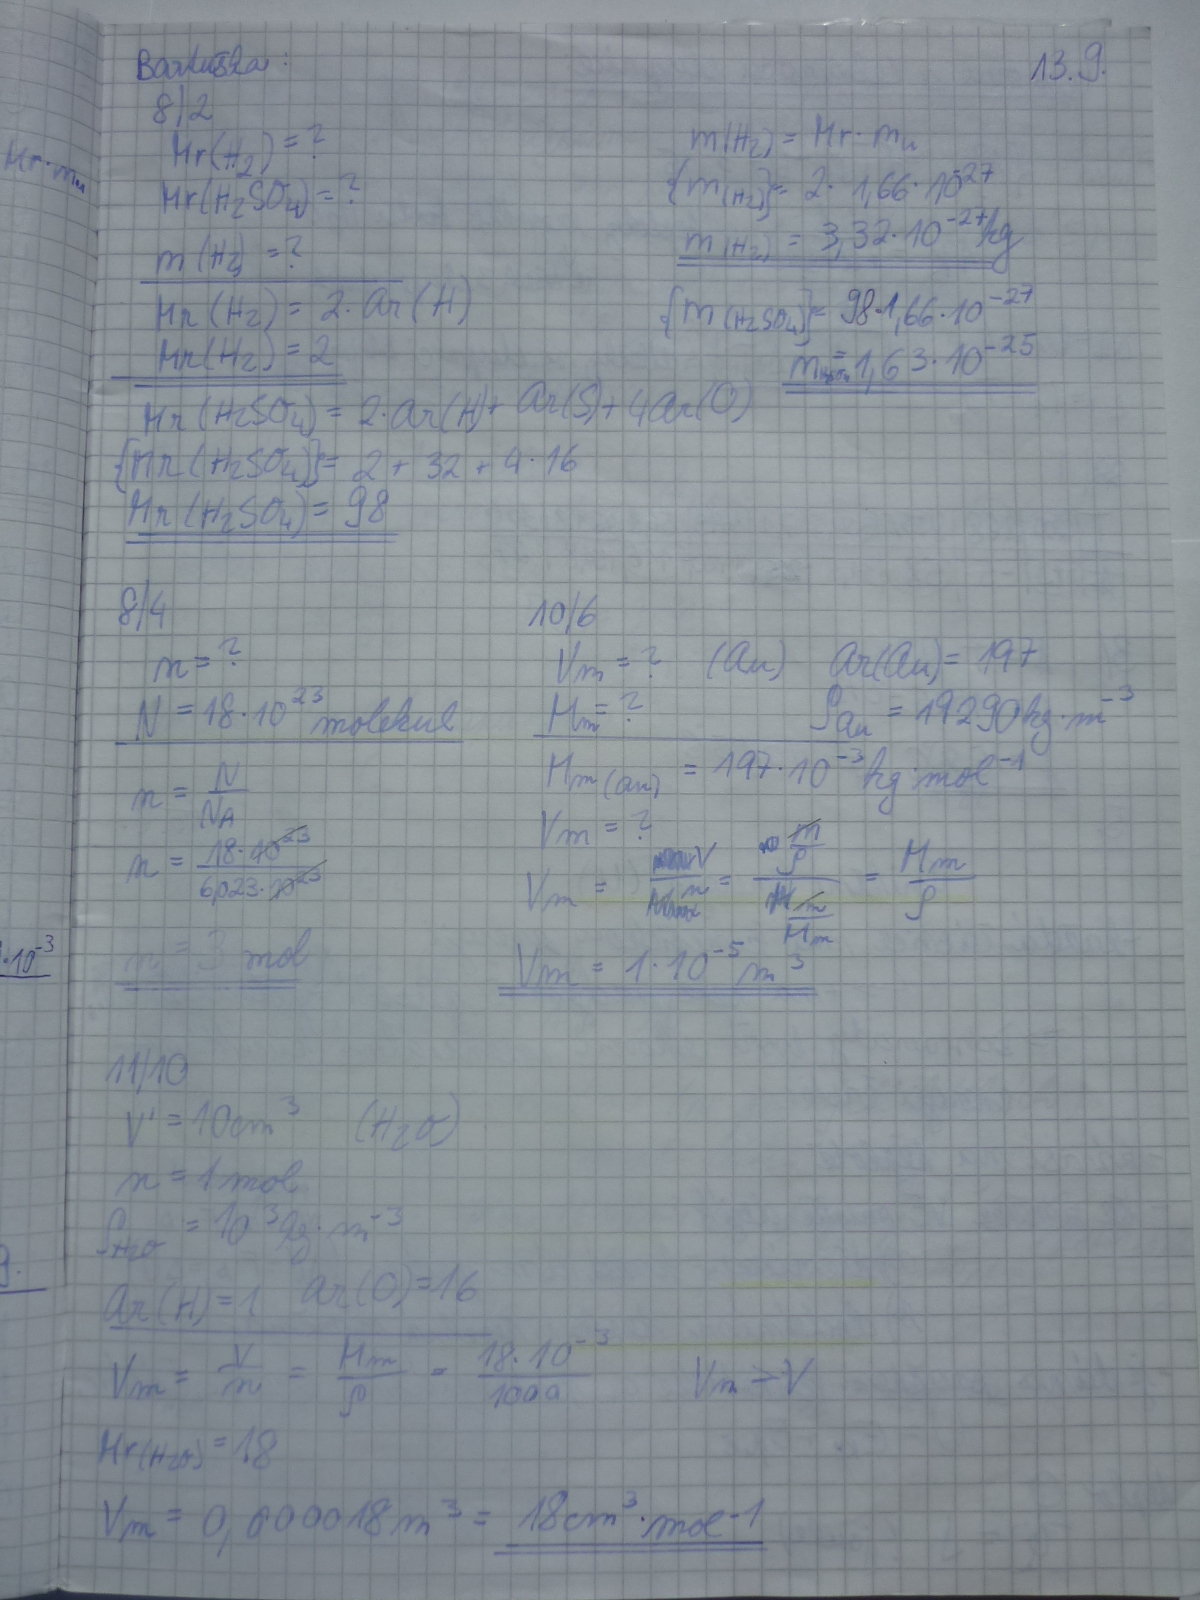 13.9.
8/2
Mr(H₂) = ?
Mr(H₂SO₄) = ?
m(H₂) = ?
Mr(H₂) = 2·Ar(H)
Mr(H₂) = 2
Mr(H₂SO₄) = 2·Ar(H) + Ar(S) + 4Ar(O)
{Mr(H₂SO₄)} = 2 + 32 + 4·16
Mr(H₂SO₄) = 98
m(H₂) = Mr·mu
{m(H₂)} = 2·1,66·10⁻²⁷
m(H₂) = 3,32·10⁻²⁷ kg
{m(H₂SO₄)} = 98·1,66·10⁻²⁷
= 1,63·10⁻²⁵
8/4
n = ?
N = 18·10²³ molekul
n = N/NA
n = 18·10²³/6,023·10²³
n = 3 mol
10/6
Vm = ? (Au) Ar(Au) = 197
Mm = ? ρAu = 19290 kg·m⁻³
Mm(Au) = 197·10⁻³ kg·mol⁻¹
Vm = ?
Vm = V/n = (m/ρ)/(m/Mm) = Mm/ρ
Vm = 1·10⁻⁵ m³
11/10
V' = 10cm³ (H₂O)
n = 1 mol
ρH₂O = 10³ kg·m⁻³
Ar(H) = 1 Ar(O) = 16
Vm = V/n = Mm/ρ = 18·10⁻³/1000 Vm → V
Mr(H₂O) = 18
Vm = 0,000018 m³ = 18cm³·mol-1
Mr·mu
·10⁻³